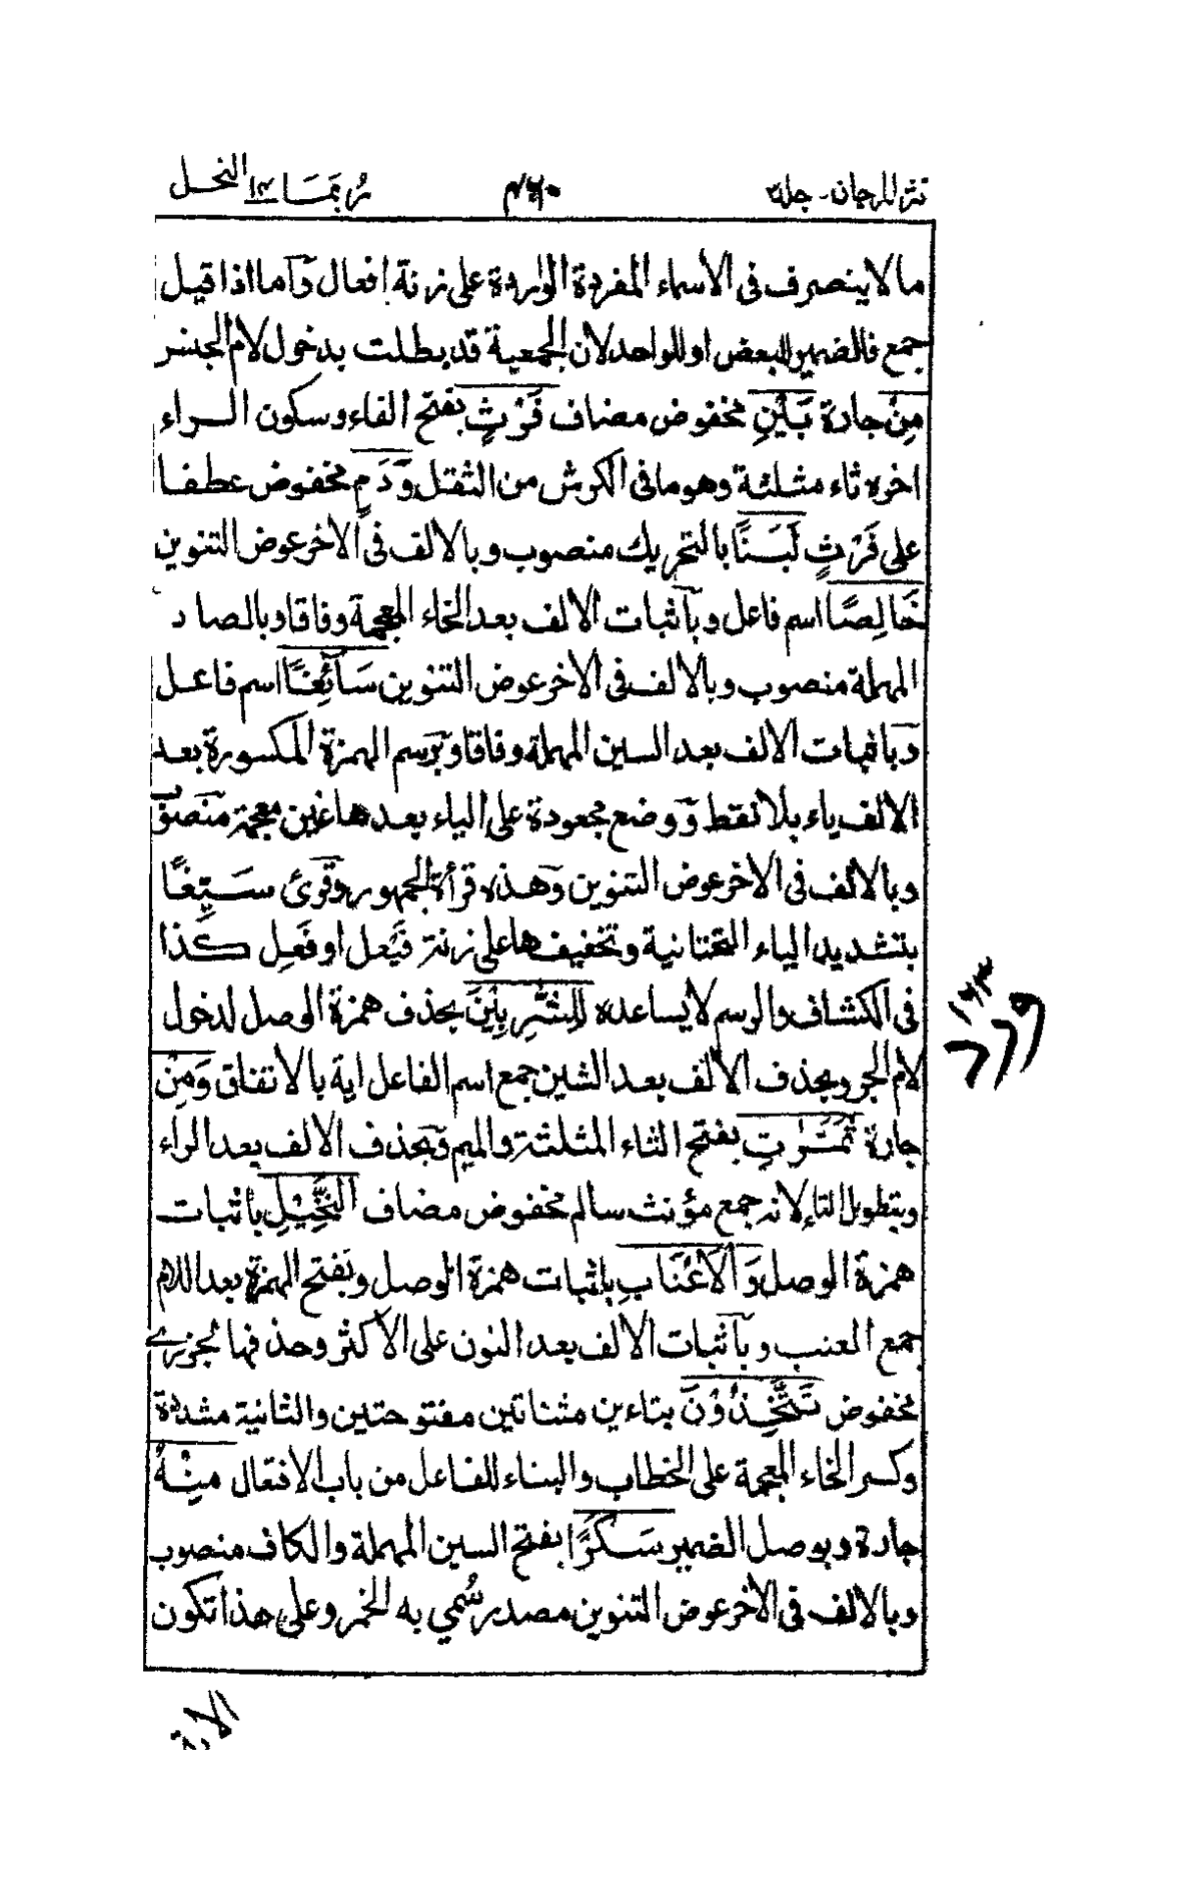 نثر المرجان - جلد ٣
ربما ١٤ النحل
ما لا ينصرف فى الأسماء المفردة الواردة على زنة افعال وآما اذا قيل
جمع فالضمير للبعض او للواحد لان الجمعية قد بطلت بدخول لام الجنس
مِنْ جارة بَيْنِ مخفوض مضاف فَرْثٍ بفتح الفاء وسكون الـراء
اخره ثاء مثلثة وهو ما فى الكرش من الثقل وَدَمٍ مخفوض عطفا
على فَرْثٍ لَبَنًا بالتحريك منصوب وبالالف فى الاخر عوض التنوين
خَالِصًا اسم فاعل وبآثبات الالف بعد الخاء المعجمة وفاقا وبالصاد
المهملة منصوب وبالالف فى الاخر عوض التنوين سَآئِغًا اسم فاعل
وباثبات الالف بعد السين المهملة وفاقا وبرسم الهمزة المكسورة بعد
الالف ياء بلا نقط ووضع مجعودة على الياء بعدها غين معجمة منصوب
وبالالف فى الاخر عوض التنوين وهذه قرأة الجمهور وقرئ سَيِّغًا
بتشديد الياء التحتانية وتخفيفها على زنة فَيْعل او فَعِل كذا
فى الكشاف والرسم لا يساعده لِلشّٰرِبِيْنَ بحذف همزة الوصل لدخول
لام الجر وبحذف الالف بعد الشين جمع اسم الفاعل اية بالاتفاق وَمِنْ
جارة ثَمَرٰتِ بفتح الثاء المثلثة والميم وبحذف الالف بعد الراء
وبتطويل التاء لانه جمع مؤنث سالم مخفوض مضاف النَّخِيْلِ باثبات
همزة الوصل وَالْاَعْنَابِ باثبات همزة الوصل وبفتح الهمزة بعد اللام
جمع العنب وبآثبات الالف بعد النون على الاكثر وحذفها الجزرى
مخفوض تَتَّخِذُوْنَ بتاءين مثناتين مفتوحتين والثانية مشددة
وكسر الخاء المعجمة على الخطاب والبناء للفاعل من باب الافتعال مِنْهُ
جارة وبوصل الضمير سَكَرًا بفتح السين المهملة والكاف منصوب
وبالالف فى الاخر عوض التنوين مصدر سُمي به الخمر وعلى هذا تكون